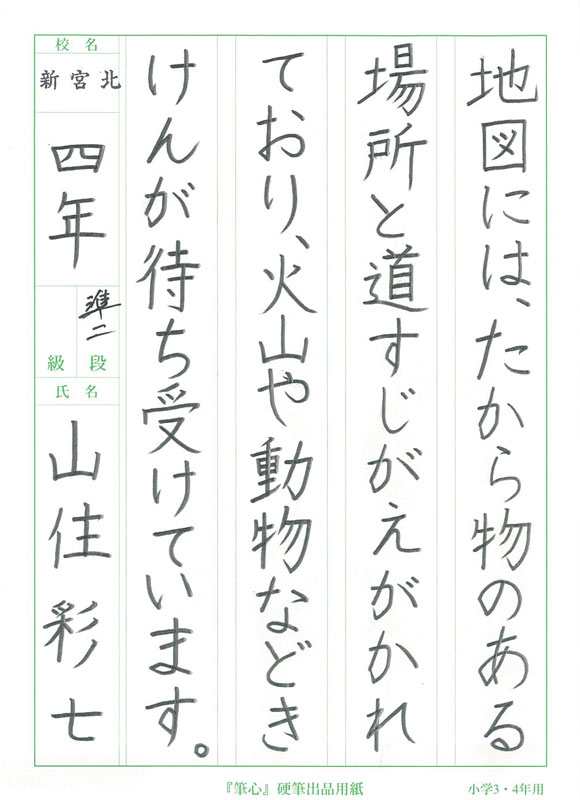 地図には、たから物のある
場所と道すじがえがかれ
ており、火山や動物などき
けんが待ち受けています。
校名
新宮北
四年
準二
段
級
氏名
山住彩七
『筆心』硬筆出品用紙
小学3・4年用